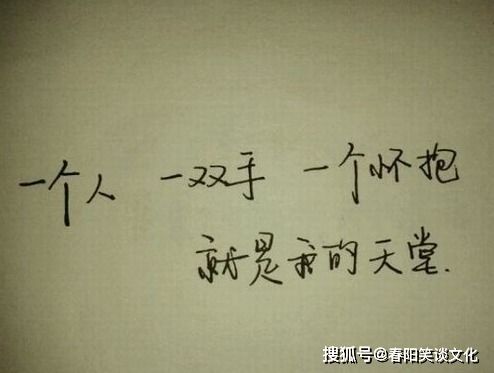 一个人 一双手 一个怀抱
就是我的天堂.
搜狐号@春阳笑谈文化